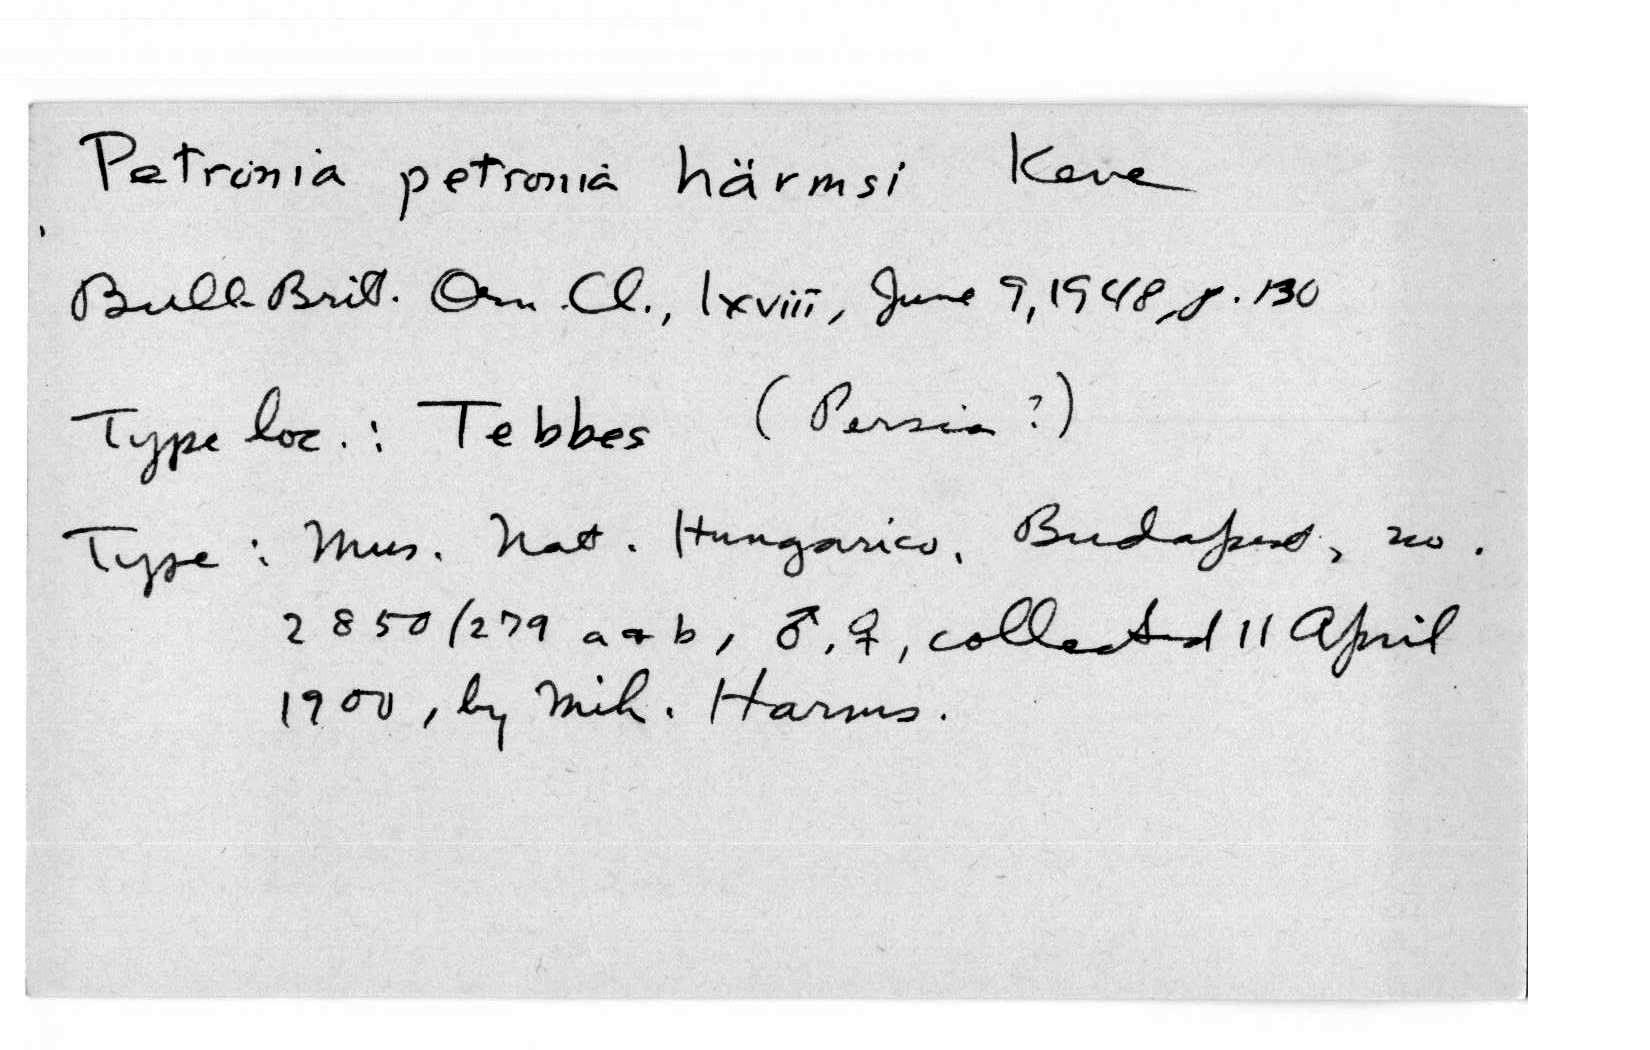 Petronia petronia härmsi Keve
Bull. Brit. Orn. Cl., lxviii, June 9, 1948, p. 130
Type loc. : Tebbes (Persia?)
Type : Mus. Nat. Hungarico, Budapest, no.
2850/279 a + b, ♂, ♀, collected 11 April
1900, by Mih. Harms.